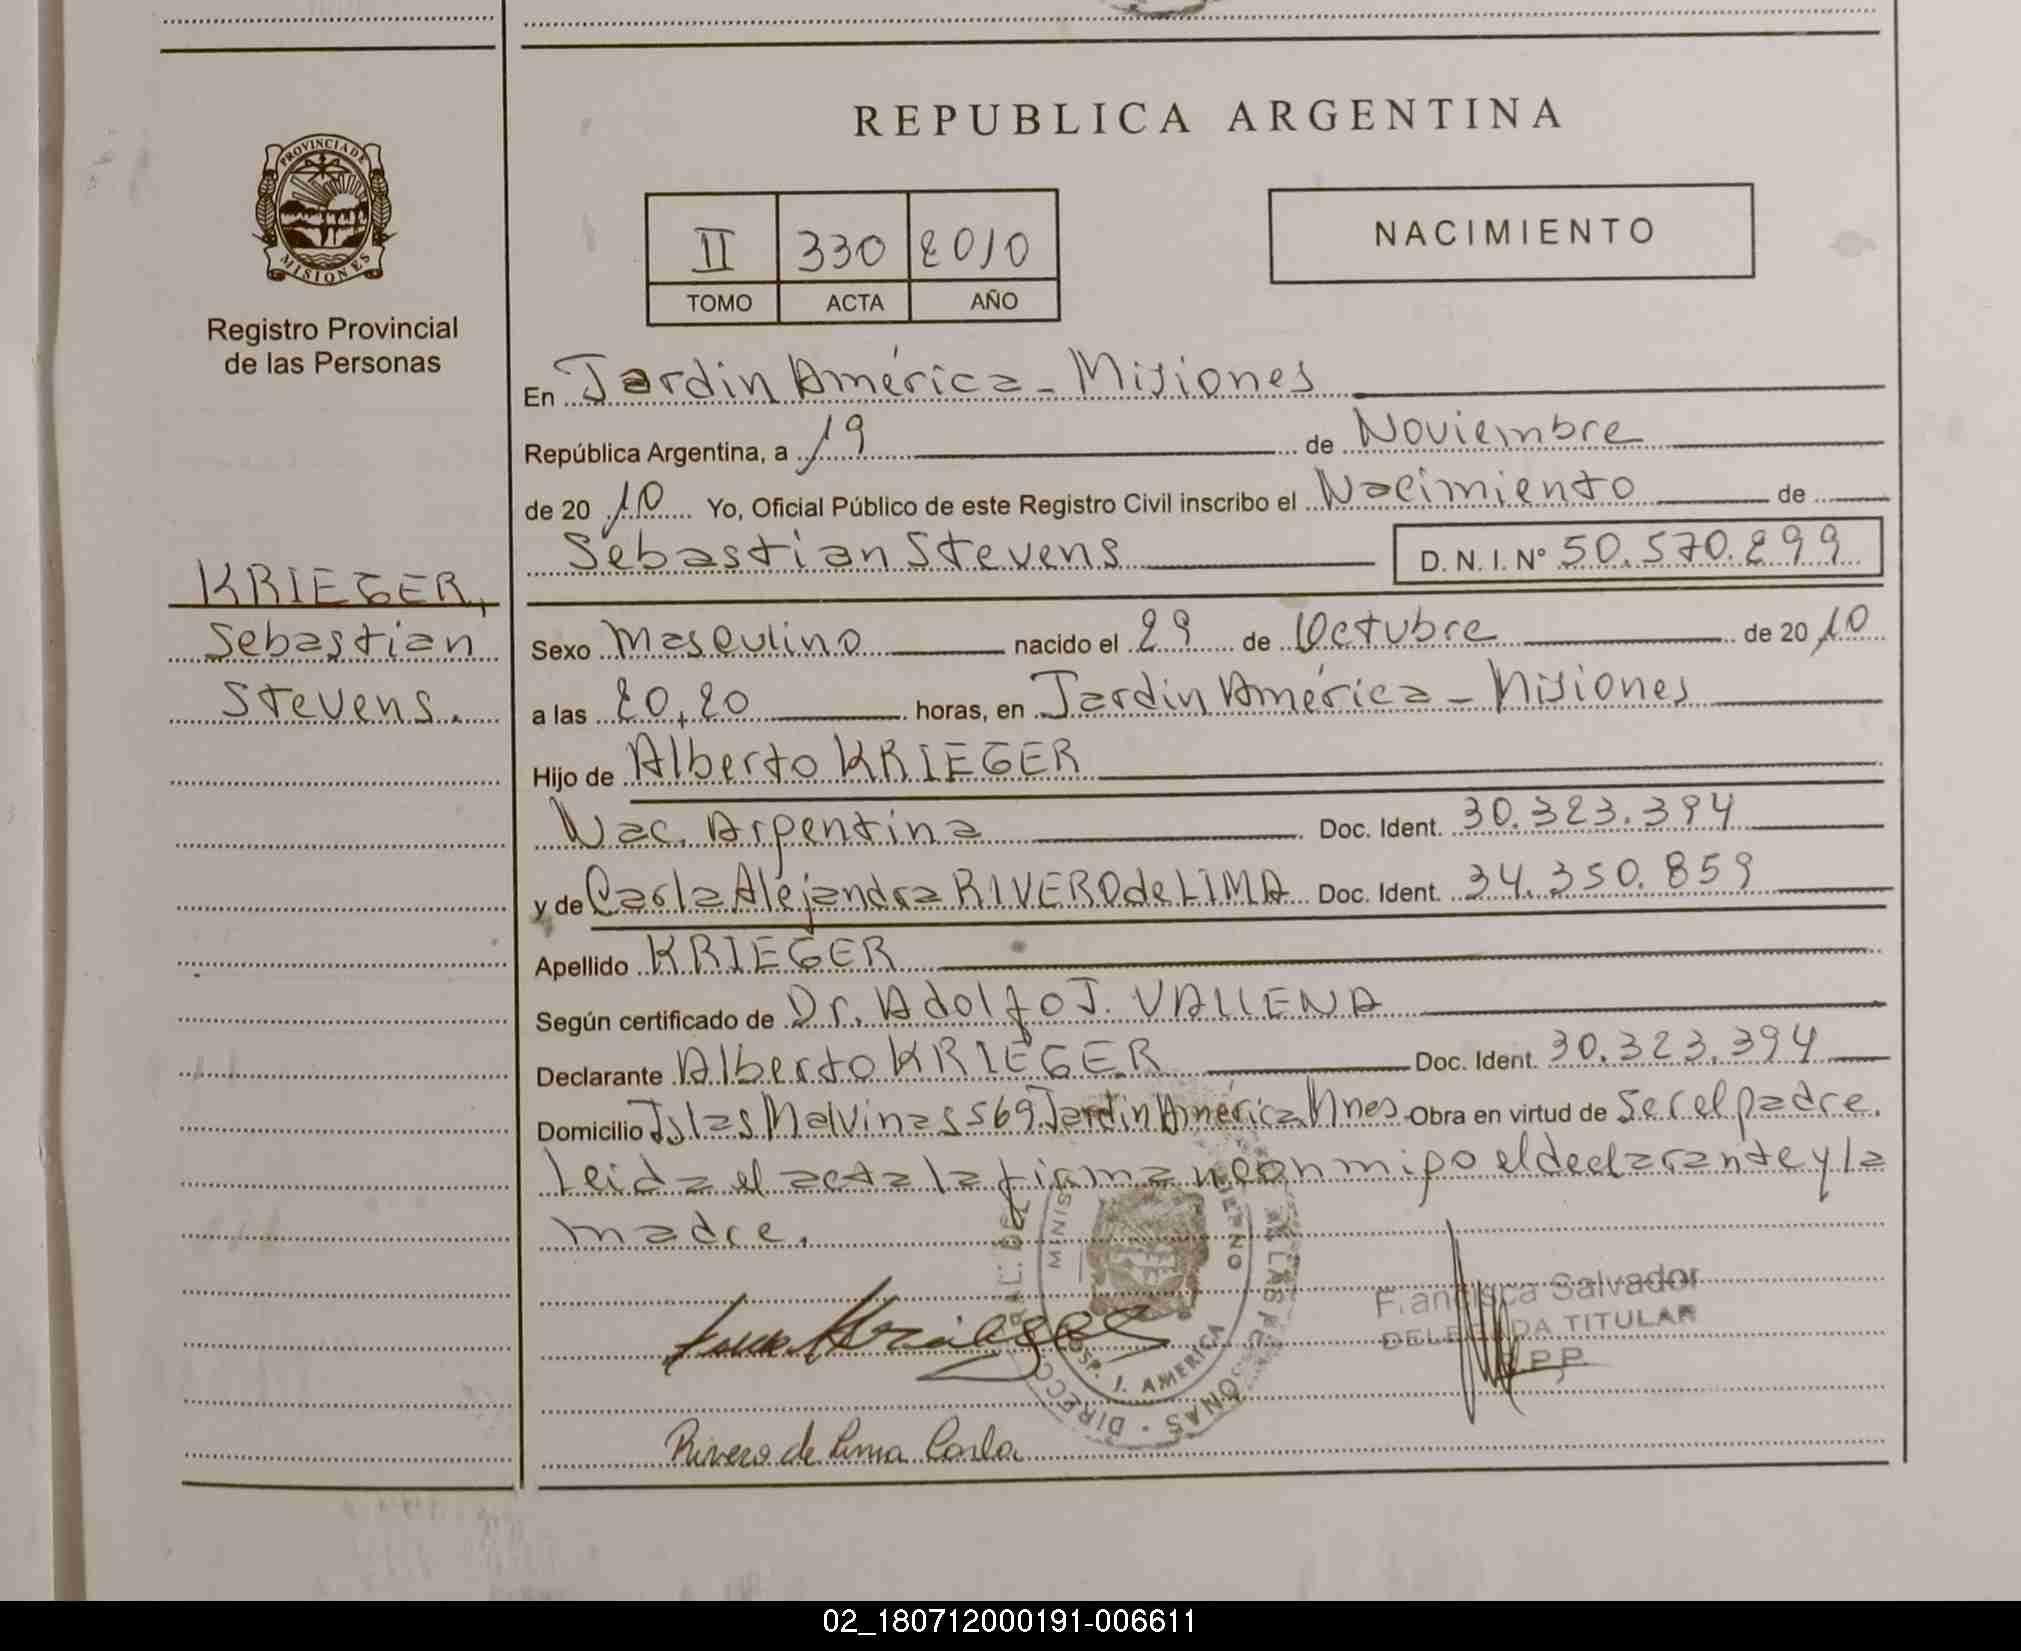 REPUBLICA ARGENTINA
PROVINCIA DE
MISIONES
Registro Provincial
de las Personas
II 330 2010
TOMO ACTA AÑO
NACIMIENTO
En Jardin América - Misiones
República Argentina, a 19 de Noviembre
de 20 10 Yo, Oficial Público de este Registro Civil inscribo el Nacimiento de
Sebastian Stevens D. N. I. Nº 50.570.299
KRIEGER,
Sebastian
Stevens.
Sexo Masculino nacido el 29 de Octubre de 20 10
a las 20,20 horas, en Jardin América - Misiones
Hijo de Alberto KRIEGER
Nac. Argentina Doc. Ident. 30.323.394
y de Carla Alejandra RIVERO de LIMA Doc. Ident. 34.350.859
Apellido KRIEGER
Según certificado de Dr. Adolfo J. VALLENA
Declarante Alberto KRIEGER Doc. Ident. 30.323.394
Domicilio Islas Malvinas 569 Jardin América Mnes Obra en virtud de Ser el padre.
Leida el acta la firman con migo el declarante y la
madre.
Francisca Salvador
TITULAR
Rivero de Lima Carla
J. AMERICA
02_180712000191-006611